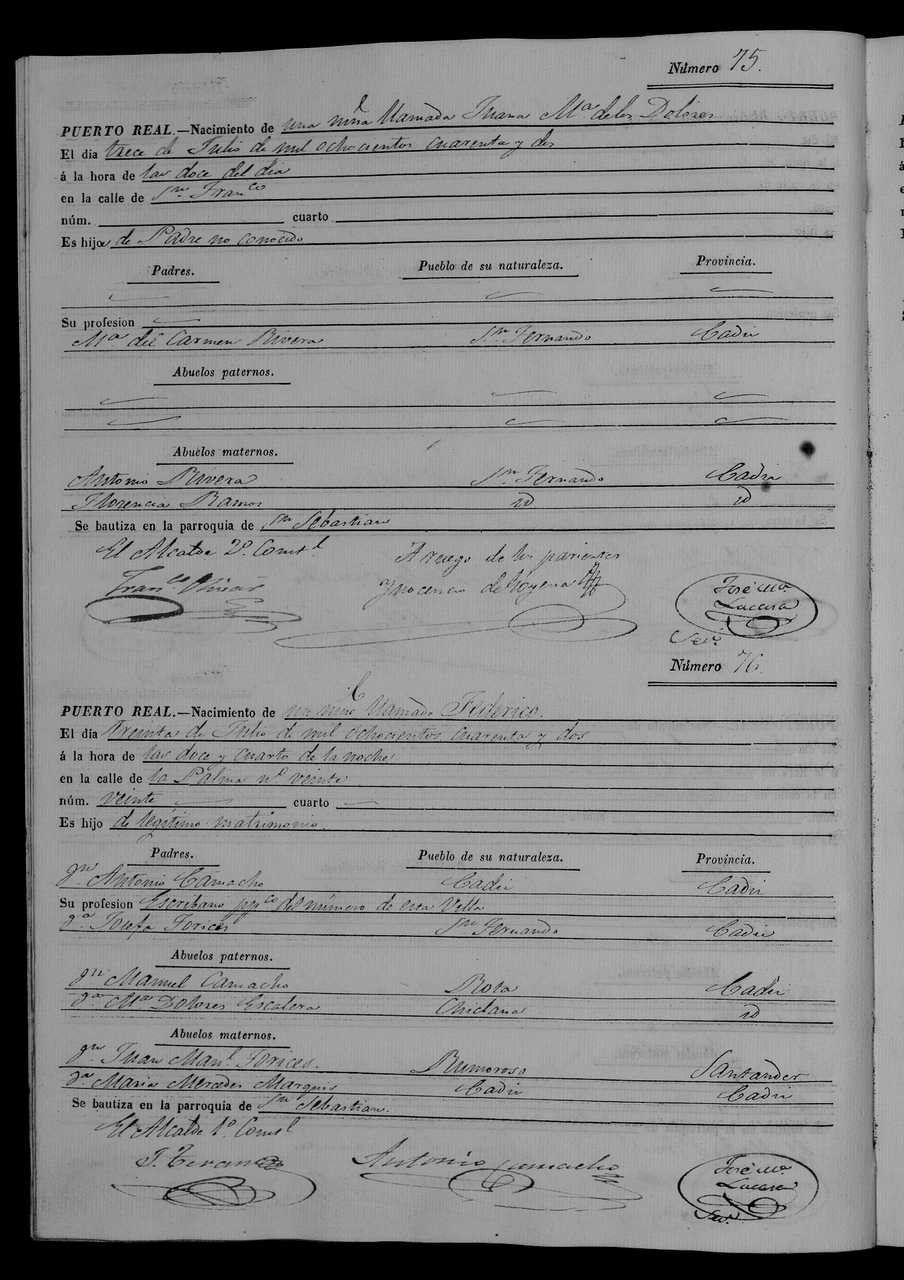 Número 75.
PUERTO REAL.—Nacimiento de una niña llamada Juana Mª de los Dolores
El dia trece de Julio de mil ochocientos cuarenta y dos
á la hora de las doce del dia
en la calle de Sn Franco
núm. cuarto
Es hija de Padre no conocido
Padres. Pueblo de su naturaleza. Provincia.
Su profesion
Mª del Carmen Rivera Sn Fernando Cadiz
Abuelos paternos.
Abuelos maternos.
Antonio Rivera Sn Fernando Cadiz
Florencia Ramos id id
Se bautiza en la parroquia de Sn Sebastian
El Alcalde 2º Constl
A ruego de los parientes
Franco
Ynocencio de
José Mª
Lacasa
Seco
Número 76
PUERTO REAL.—Nacimiento de un niño llamado Federico.
El dia treinta de Julio de mil ochocientos cuarenta y dos
á la hora de las doce y cuarto de la noche
en la calle de la Palma nº veinte
núm. veinte cuarto
Es hijo de legitimo matrimonio
Padres. Pueblo de su naturaleza. Provincia.
Dn Antonio Camacho Cadiz Cadiz
Su profesion Escribano ppco del número de esta Villa
Dª Josefa Torices Sn Fernando Cadiz
Abuelos paternos.
Dn Manuel Camacho Rota Cadiz
Dª Mª Dolores Escalera Chiclana id
Abuelos maternos.
Dn Juan Manl Torices Rumoroso Santander
Dª Maria Mercedes Marquez Cadiz Cadiz
Se bautiza en la parroquia de Sn Sebastian.
El Alcalde 1º Constl
Antonio Camacho
José Mª
Lacasa
Seco